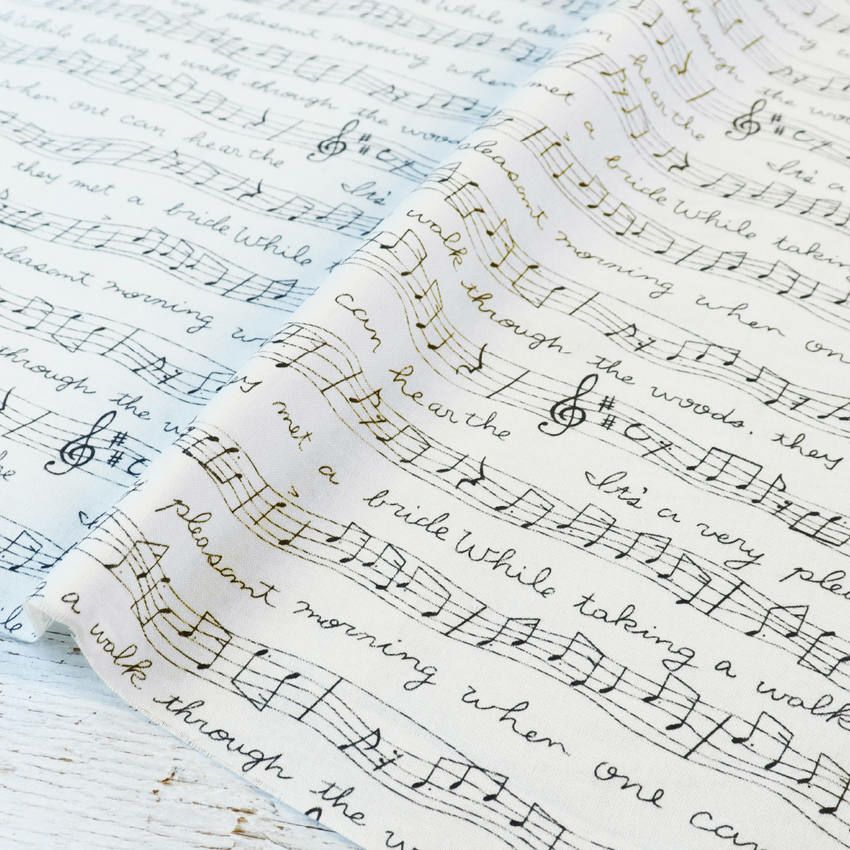 very pleasant morning when
While taking a walk through the woo
when one can hear the It's
they met a bride While t
pleasant morning w
through the w
the
le
though the wo
hear the It's a
met a bride While taking
pleasant morning when on
walk through the woods. they
can hear the It's a very plea
y met a bride While taking a walk
pleasant morning when one can
a walk through the w